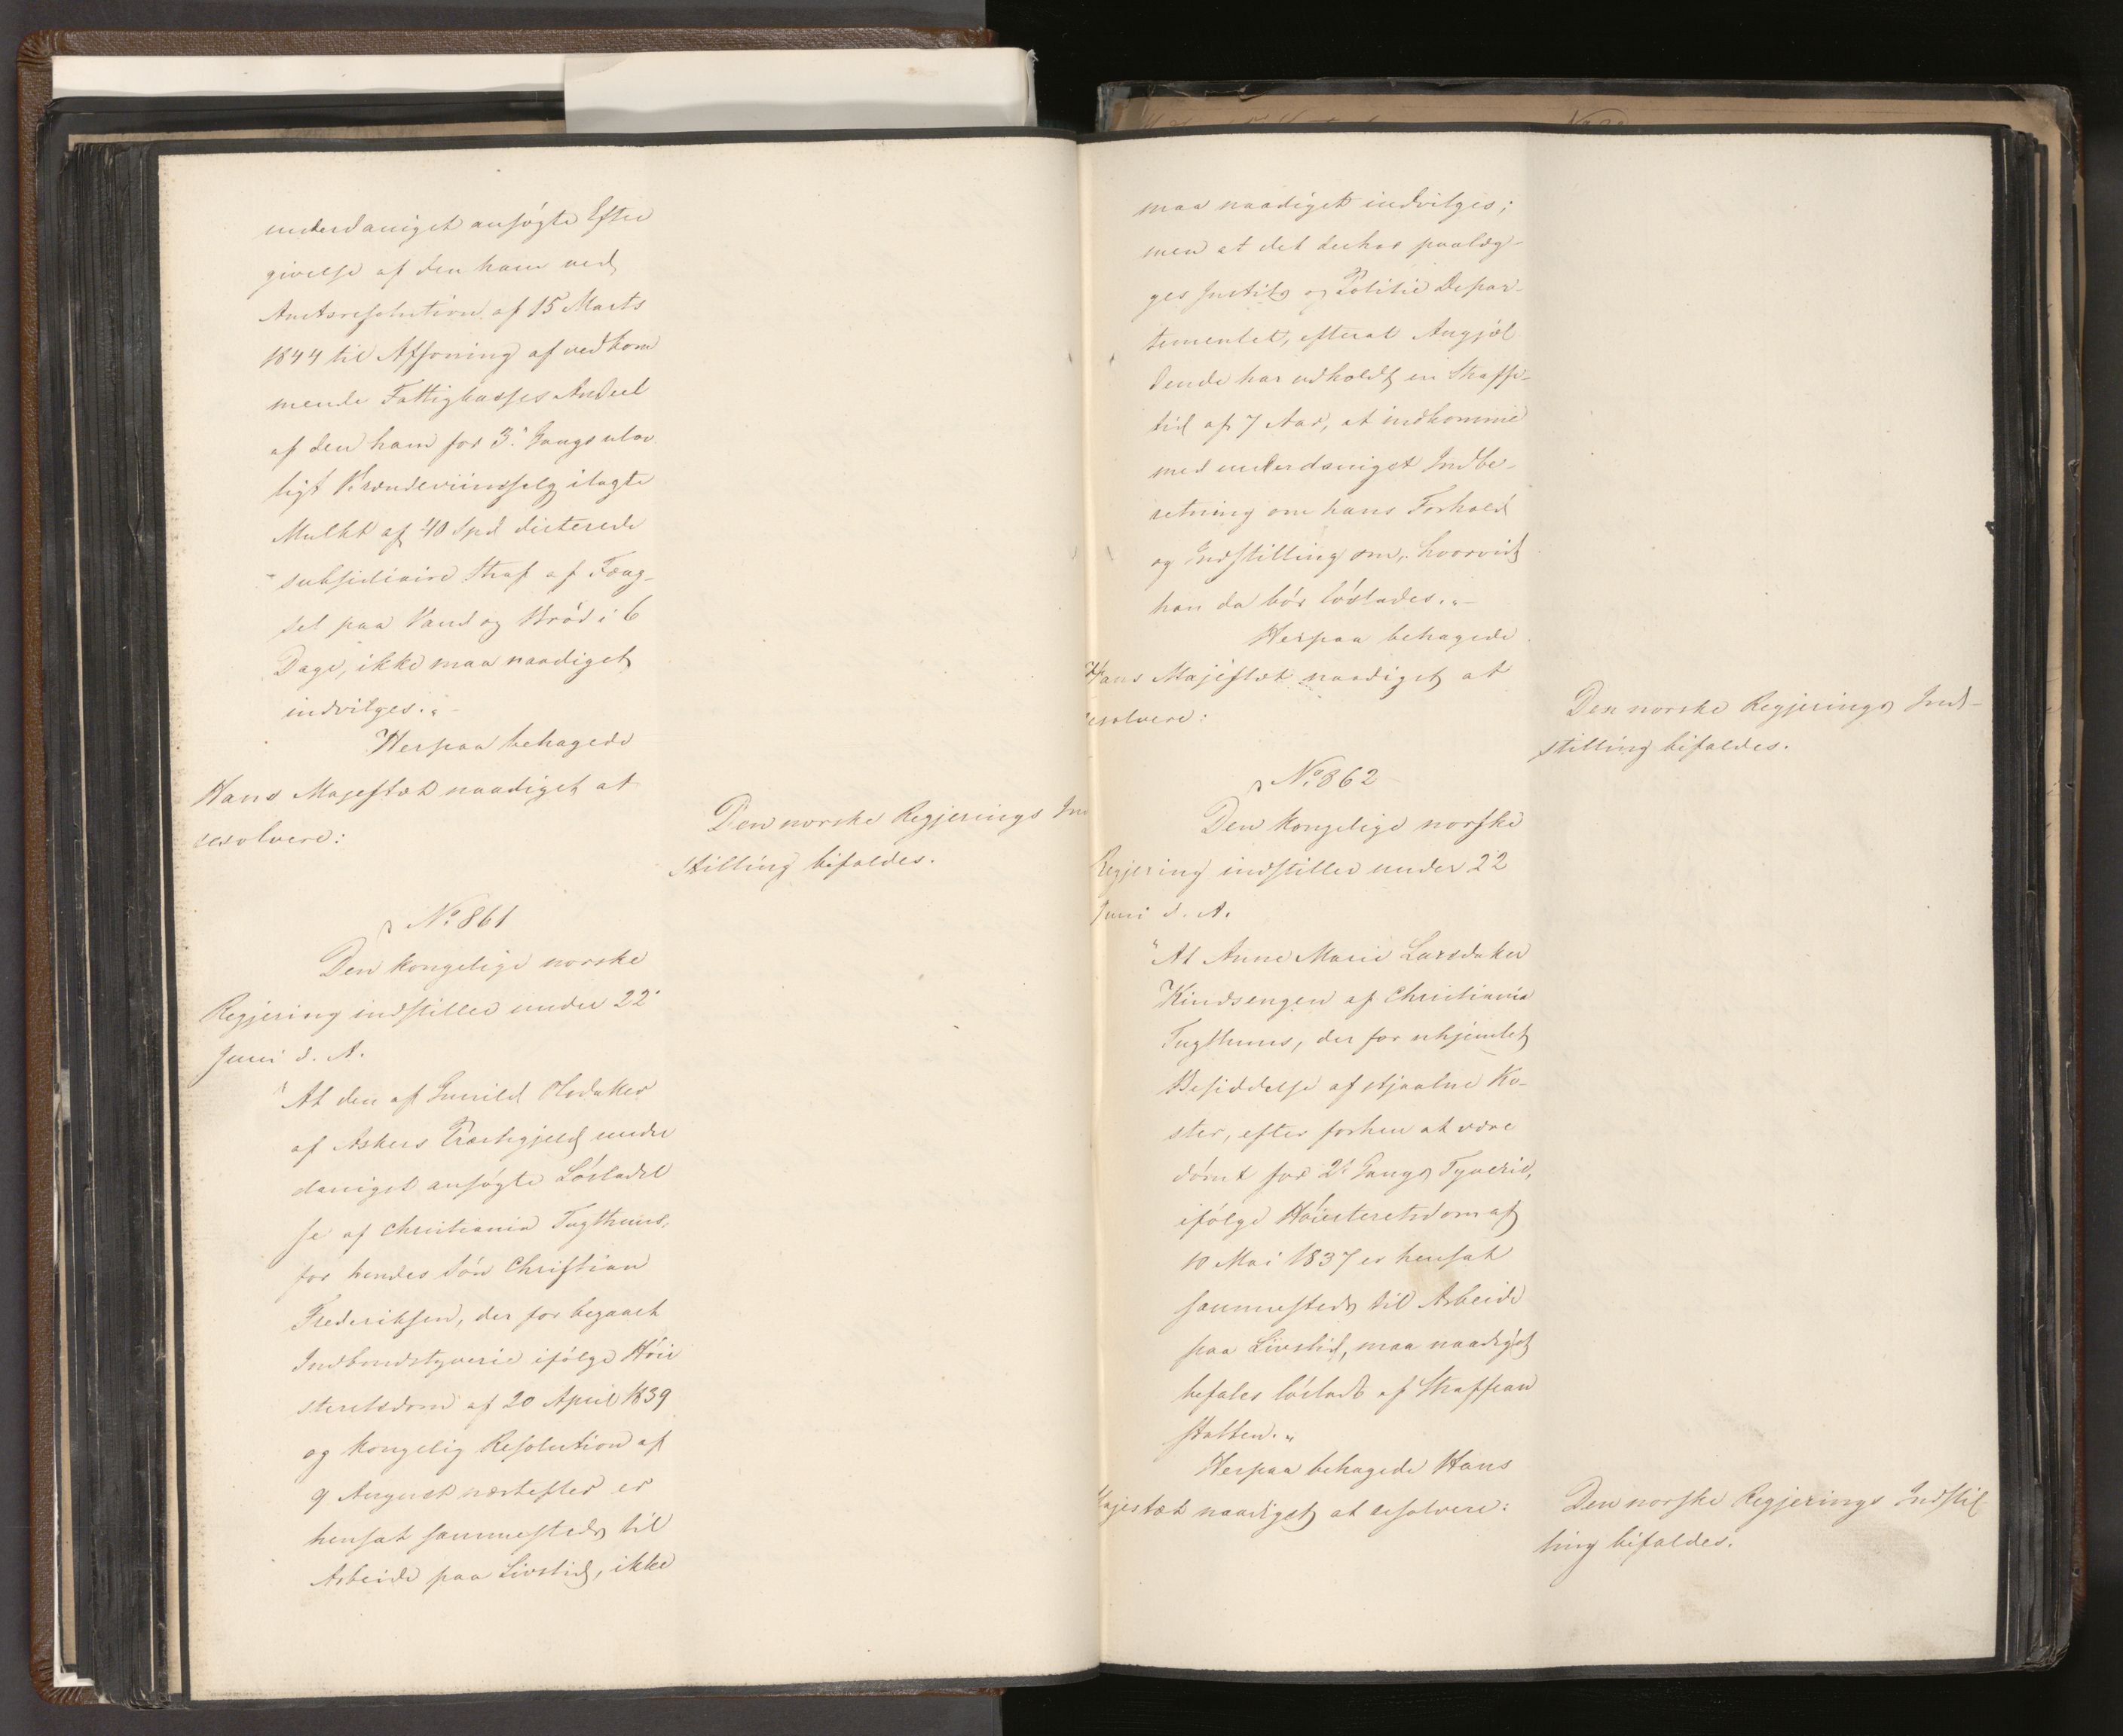 underdanigst ansøgte Efter
givelse af den ham ved
Amtsresolution af 15 Marts
1844 til Afsoning af vedkom
mende Fattigkasses Andeel
af den ham for 3. Gangs ulov
ligt Brændeviinssalg ilagte
Mulkt af 40 Spd dicterede
subsidiaire Straf af Fæng-
sel paa Vand og Brød i 6
Dage, ikke maa naadigst
indvilges."-
Herpaa behagede
Hans Majestæt naadigst at
resolvere:
Den norske Regjerings Ind
stilling bifaldes.
No. 861
Den kongelige norske
Regjering indstiller under 22.
Juni d. A.
"At den af Gunild Olsdatter
af Askers Præstegjeld under
danigst ansøgte Løsladel
se af Christiania Tugthuus,
for hendes Søn Christian
Frederiksen, der for begaaet
Indbrudstyverie ifølge Høie
steretsdom af 20 April 1839
og kongelig Resolution af
9 August næstefter er
hensat sammesteds til
Arbeide paa Livstid, ikke
maa naadigst indvilges;
men at det derhos paalæg-
ges Justits og Politie Depar-
tementet, efterat Angjæl
dende har udholdt en Straffe-
tid af 7 Aar, at indkomme
med underdanigst Indbe-
retning om hans Forhold
og Indstilling om, hvorvidt
han da bør løslades."-
Herpaa behagede
Hans Majestæt naadigst at
resolvere:
Den norske Regjerings Ind-
stilling bifaldes.
No. 862
Den kongelige norske
Regjering indstiller under 22
Juni d. A.
"At Anne Marie Larsdatter
Kindsengen af Christiania
Tugthuus, der for uhjemlet
Besiddelse af stjaalne Ko-
ster, efter forhen at være
dømt for 2. Gangs Tyverie,
ifølge Høiesteretsdom af
10 Mai 1837 er hensat
sammesteds til Arbeide
paa Livstid, maa naadigst
befales løsladt af Straffean
stalten."
Herpaa behagede Hans
Majestæt naadigst at resolvere:
Den norske Regjerings Indstil
ling bifaldes.